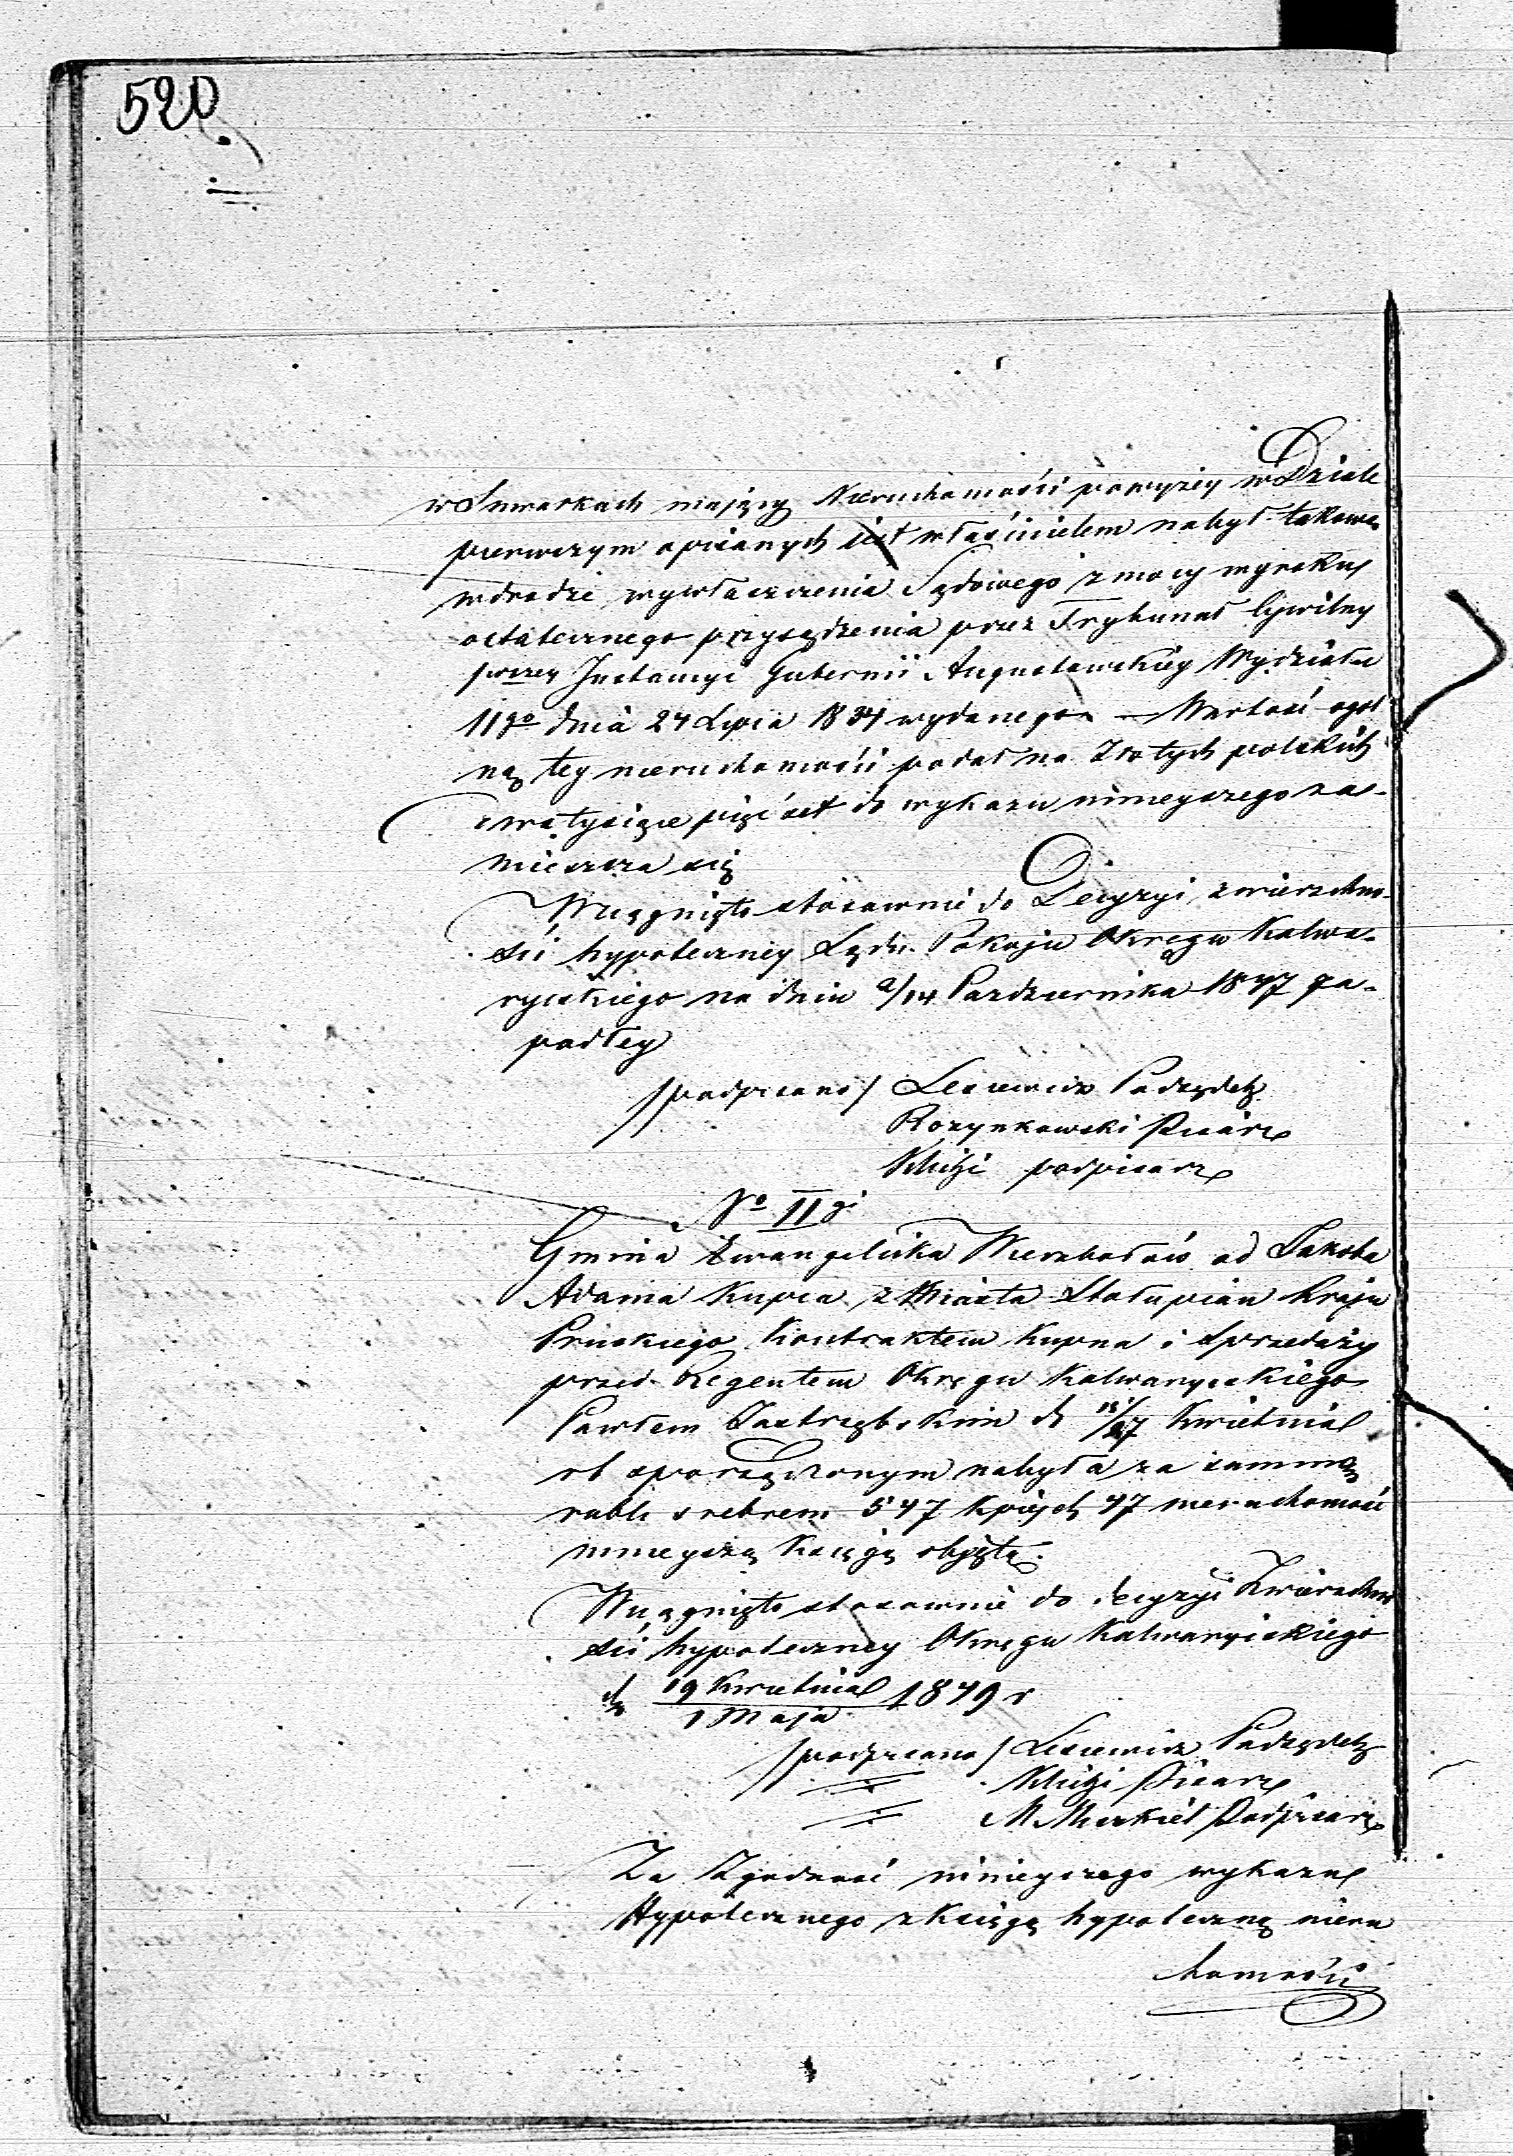 520
w Suwałkach mający Nieruchomości powyżey w Dziale
pierwszym opisanych jest właścicielem nabył takowe
w drodze wywłaszczenia Sądowego z mocy wyroku
ostatecznego przysądzenia przez Trybunał Cywilny
pierwszey Instancyi Gubernii Augustowskiey Wydziału
IIgo dnia 24 Lipca 1834 wydanego — Wartość ogól
ną tey nieruchomości podał na Złotych polskich
dwatysiące pięćset do wykazu ninieyszego za-
mieszcza się
Wciągnięto stosownie do Decyzyi zwierzchno-
ści hypoteczney Sądu Pokoju Okręgu Kalwa-
ryiskiego na dniu 2/14 Pazdziernika 1847 za-
padłey
/podpisano/ Lesiewicz Podsędek
Rozynkowski Pisarz
podpisarz
No II gi
Gmina Ewangelicka Wierzbołów od Jakoba
Adama Kupca z Miasta Stołupian Kraju
Pruskiego Kontraktem Kupna i Sprzedaży
przed Regentem Okręgu Kalwaryiskiego
Pawłem Jastrzębskim d. 15/27 Kwietnia
rb sporządzonym nabyła za summę
rubli srebrem 547 kopiejek 47 nieruchomość
ninieyszą Księgą objętą.
Wciągnięto stosownie do decyzyi Zwierzchno
ści hypoteczney Okręgu Kalwaryiskiego
d. 19 Kwietnia / 1 Maja 1849 r
/podpisano/ Lesiewicz Podsędek
Pisarz
M Podpisarz
Za Zgodność ninieyszego wykazu
Hypotecznego z Księgą hypoteczną nieru
chomości